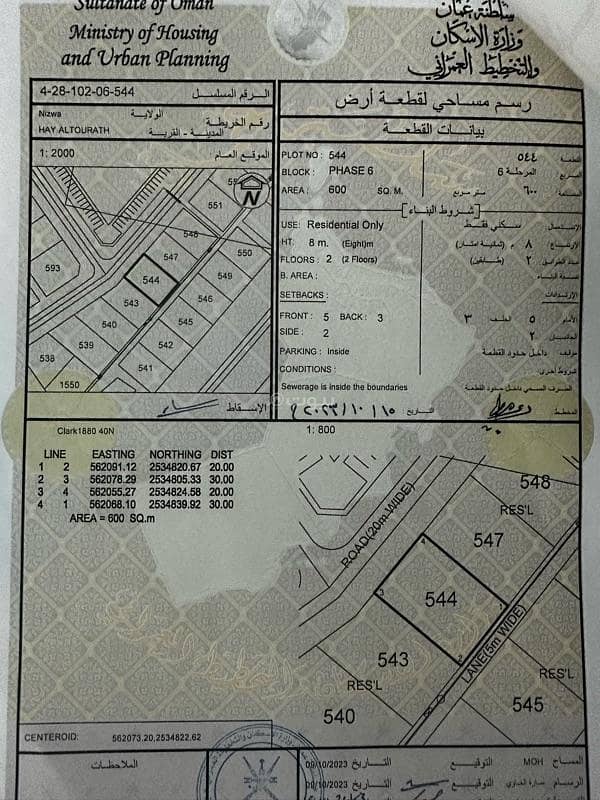 Sultanate of Oman
Ministry of Housing
and Urban Planning
سلطنة عمان
وزارة الإسكان
والتخطيط العمراني
4-28-102-06-544 الرقم المسلسل
Nizwa الولاية
رقم الخريطة
HAY ALTOURATH المدينة - القرية
1: 2000 الموقع العام
رسم مساحي لقطعة أرض
بيانات القطعة
PLOT NO : 544 ٥٤٤ القطعة
BLOCK : PHASE 6 المرحلة 6 المربع
AREA : 600 SQ. M. متر مربع ٦٠٠ المساحة
[شروط البناء]
USE: Residential Only سكني فقط الإستعمال
HT: 8 m. (Eight)m ٨ م (ثمانية امتار) الإرتفاع
FLOORS : 2 (2 Floors) ٢ (طابقين) عدد الطوابق
B. AREA : نسبة البناء
SETBACKS : الإرتدادات
FRONT : 5 BACK : 3 ٣ الخلف ٥ الأمام
SIDE : 2 ٢ الجانبين
PARKING : Inside داخل حدود القطعة مواقف
CONDITIONS : شروط أخرى
Sewerage is inside the boundaries الصرف الصحي داخل حدود القطعة
المخطط التاريخ ١٥ / ١٠ / ٢٠٢٣
551
548
547
550
593
544
549
543
546
540
545
539
542
538
541
1550
N
الإسقاط
Clark1880 40N
1: 800
LINE EASTING NORTHING DIST
1 2 562091.12 2534820.67 20.00
2 3 562078.29 2534805.33 30.00
3 4 562055.27 2534824.58 20.00
4 1 562068.10 2534839.92 30.00
AREA = 600 SQ.m
548
RES'L
547
ROAD(20m WIDE)
4
544
3
1
2
LANE(5m WIDE)
543
RES'L
RES'L
540
545
CENTEROID: 562073.20,2534822.62
الملاحظات
المساح MOH التوقيع التاريخ 09/10/2023
الرسام التوقيع التاريخ 09/10/2023